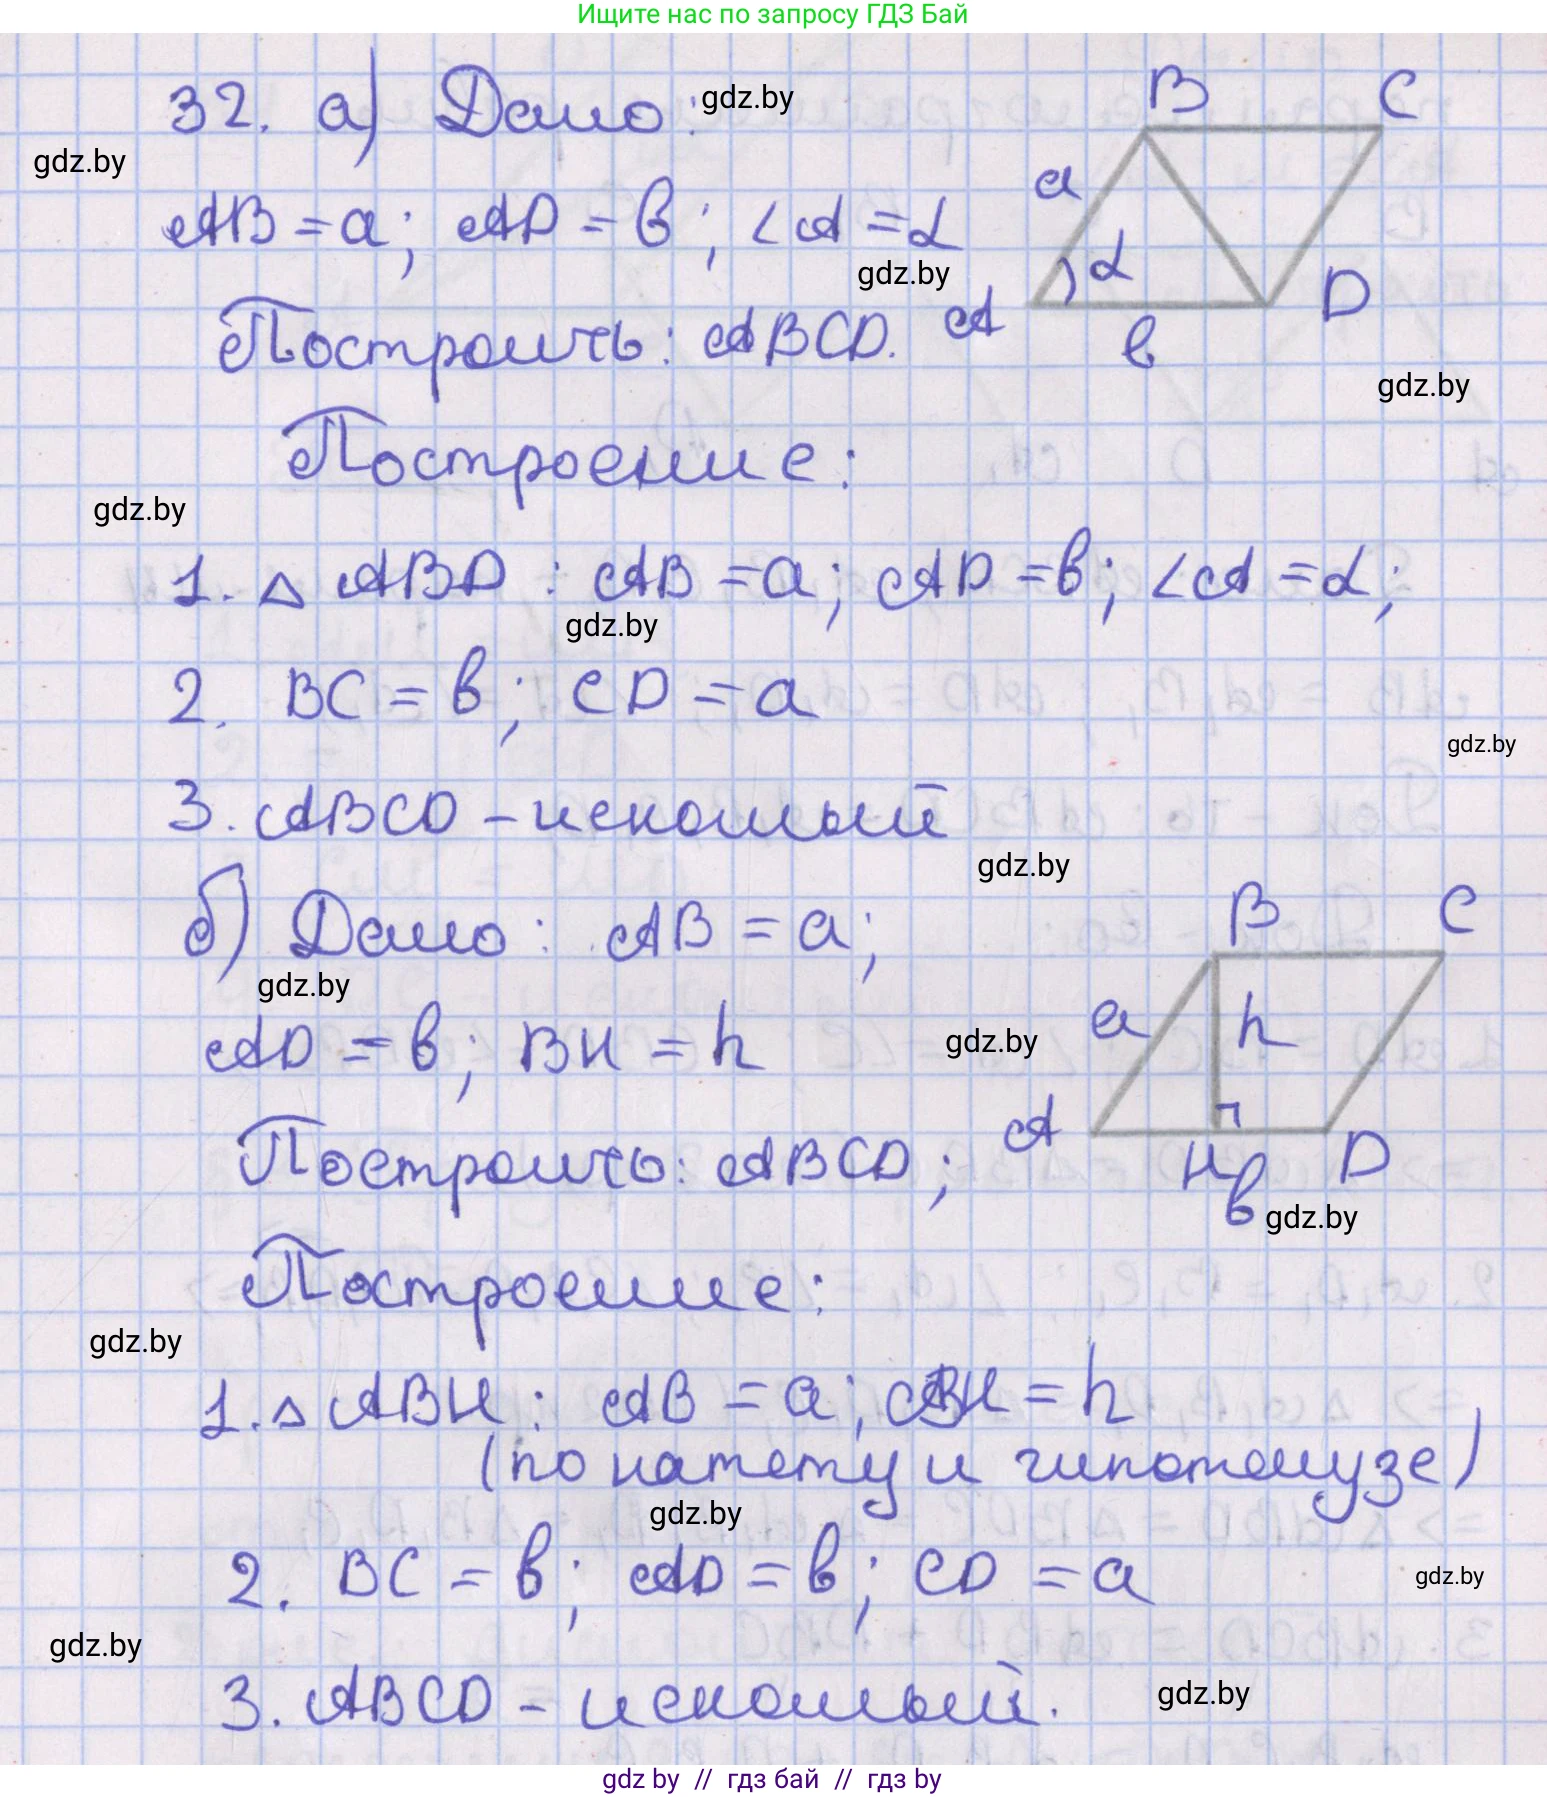 Ищите нас по запросу ГДЗ Бай
32. а) Дано: gdz.by
B C
gdz.by
a
AB = a; AD = в; ∠A = α
α
gdz.by
D
Построить: ABCD.
A
в
gdz.by
Построение:
gdz.by
1. △ ABD: AB = a; AD = в; ∠A = α;
gdz.by
2. BC = в; CD = a
gdz.by
3. ABCD – искомый
gdz.by
б) Дано: AB = a;
B C
gdz.by
AD = в; BH = h
gdz.by
a h
Построить: ABCD;
A H D
в
gdz.by
Построение:
gdz.by
1. △ ABH: AB = a; BH = h
(по катету и гипотенузе)
gdz.by
2. BC = в; AD = в; CD = a
gdz.by
gdz.by
3. ABCD – искомый.
gdz.by
gdz by // гдз бай // гдз by